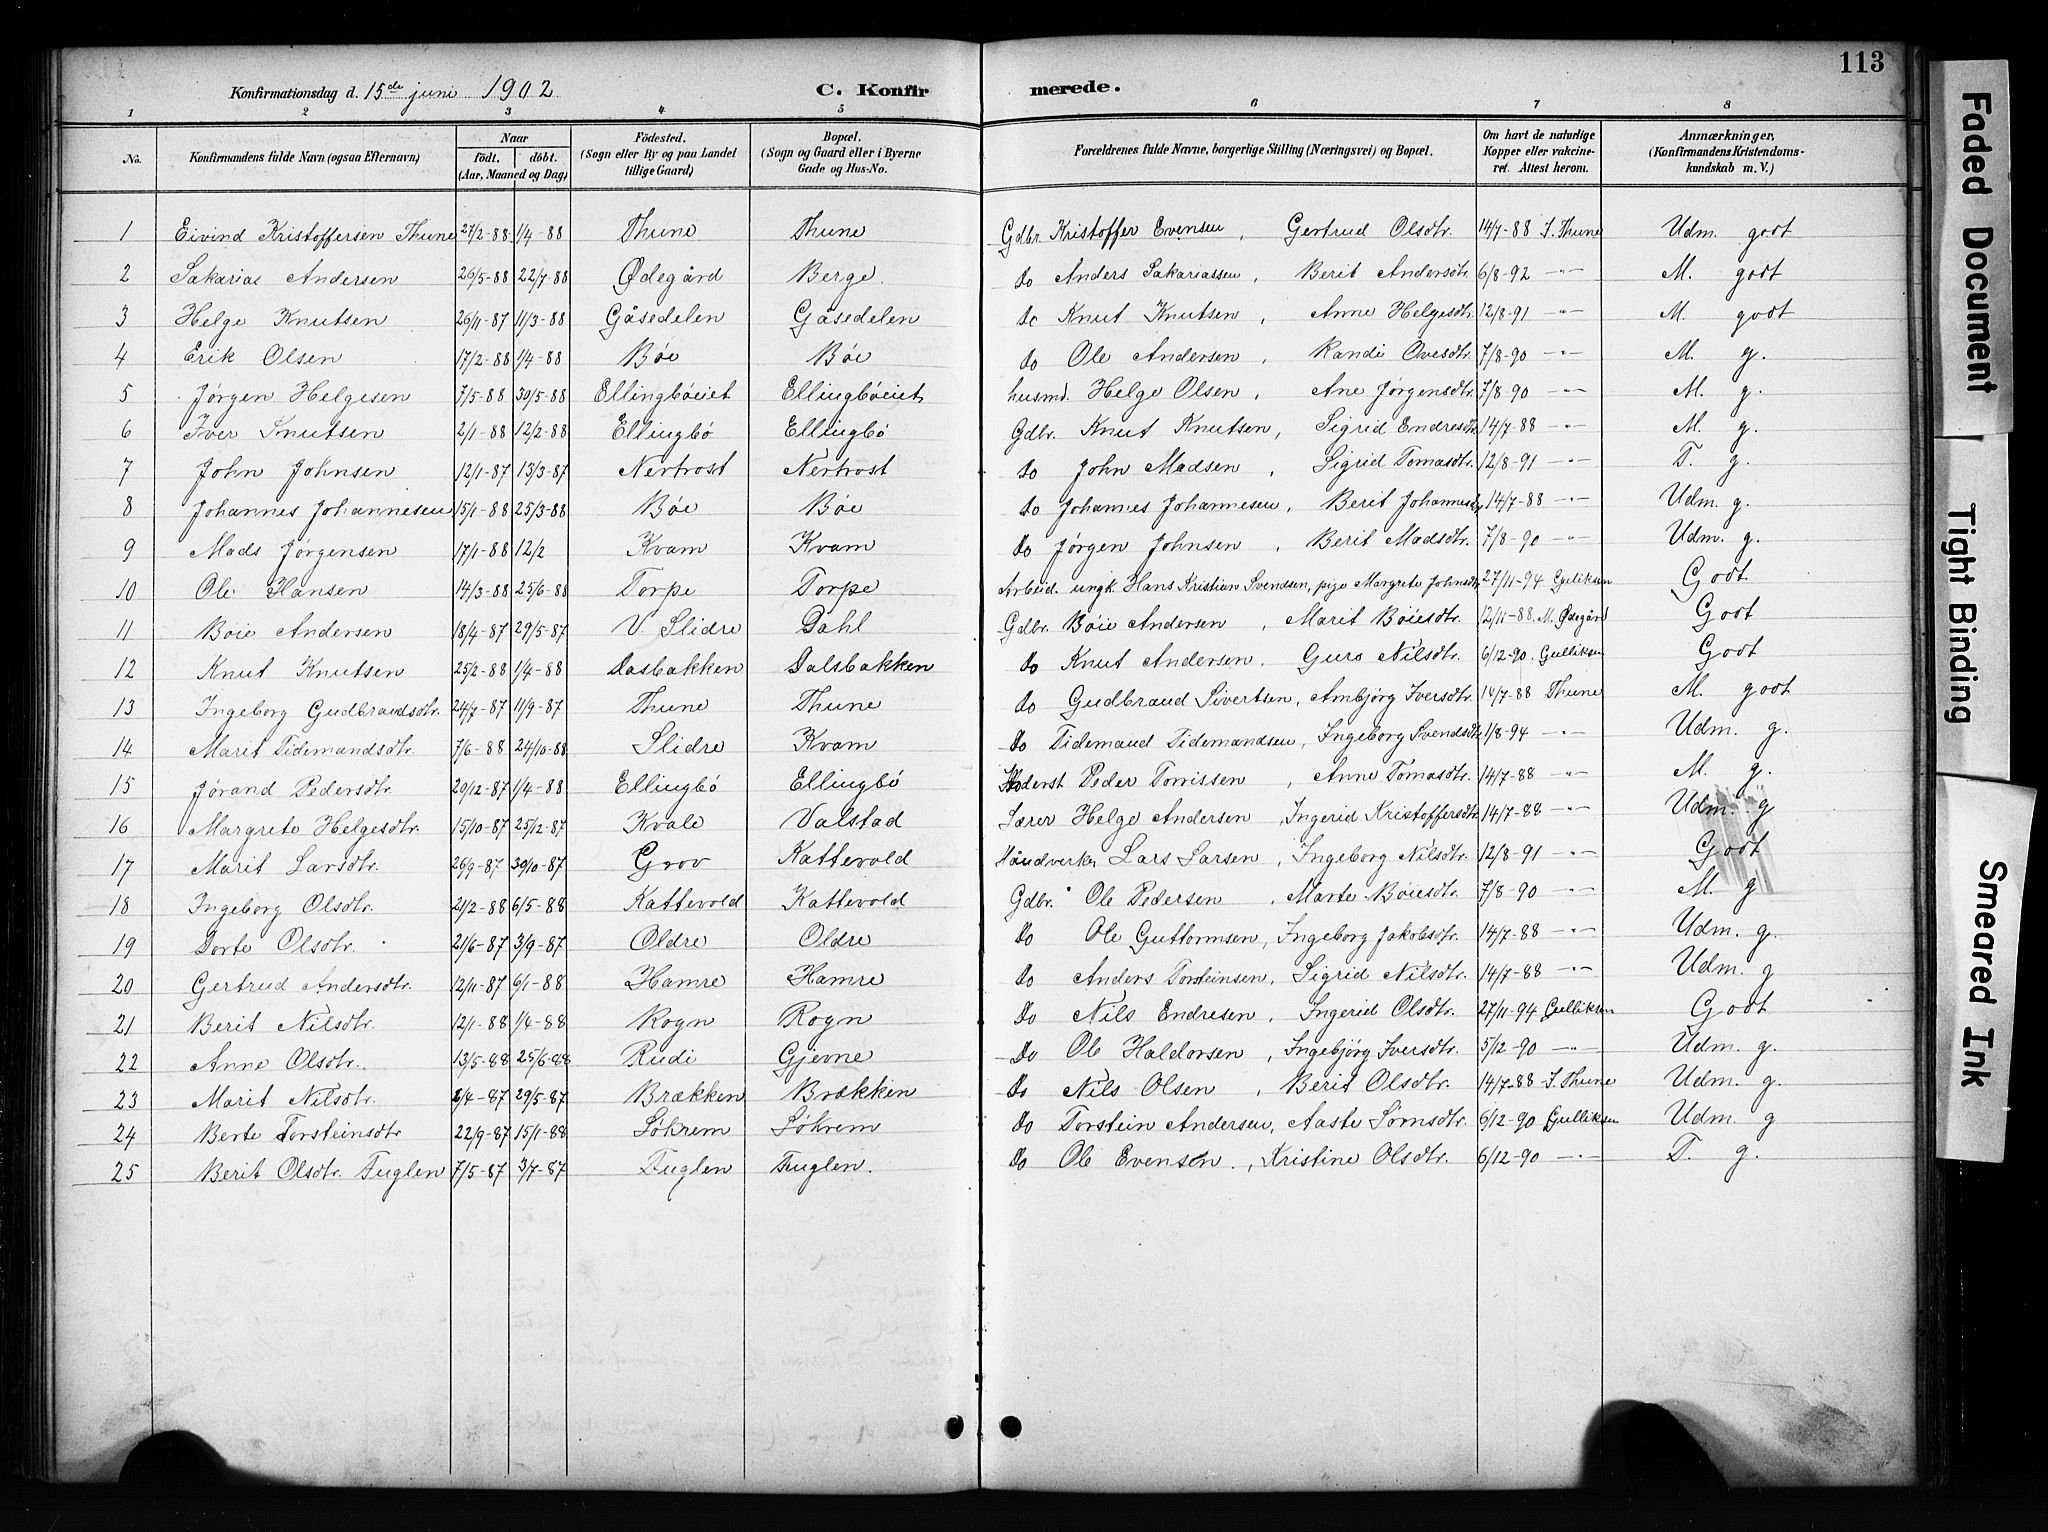 113
Konfirmationsdag d. 15de juni 1902 C. Konfirmerede.
1 2 3 4 5 6 7 8
No. Konfirmandens fulde Navn (ogsaa Efternavn) Naar födt. döbt. (Aar, Maaned og Dag) Födested. (Sogn eller By og paa Landet tillige Gaard) Bopæl. (Sogn og Gaard eller i Byerne Gade og Hus-No. Forældrenes fulde Navne, borgerlige Stilling (Næringsvei) og Bopæl. Om havt de naturlige Kopper eller vakcineret. Attest herom. Anmærkninger. (Konfirmandens Kristendomskundskab m. V.)
1 Eivind Kristoffersen Thune 27/2-88 1/4-88 Thune Thune Gdbr. Kristoffer Evensen, Gertrud Olsdtr. 14/7-88 J. Thune Udm. godt
2 Sakarias Andersen 26/5-88 22/7-88 Ødegård Berge. do Anders Sakariassen, Berit Andersdtr. 6/8-92 -"- M. godt
3 Helge Knutsen 26/11-87 11/3-88 Gåsedelen Gåsedelen do Knut Knutsen, Anne Helgesdtr. 12/8-91 -"- M. godt
4 Erik Olsen 17/2-88 1/4-88 Bøe Bøe do Ole Andersen, Randi Ovesdtr. 7/8-90 -"- M. g.
5 Jørgen Helgesen 7/5-88 30/5-88 Ellingbøeiet Ellingbøeiet husmd. Helge Olsen, Ane Jørgensdtr. 7/8-90 -"- M. g.
6 Iver Knutsen 2/1-88 12/2-88 Ellingbø Ellingbø Gdbr. Knut Knutsen, Sigrid Endresdtr. 14/7-88 -"- M. g.
7 John Johnsen 12/1-87 13/3-87 Nertrost Nertrost do John Madsen, Sigrid Tomasdtr. 12/8-91 -"- T. g.
8 Johannes Johannesen 15/1-88 25/3-88 Bøe Bøe do Johannes Johannesen, Berit Johannesdtr. 14/7-88 -"- Udm. g.
9 Mads Jørgensen 17/1-88 12/2 Kvam Kvam do Jørgen Johnsen, Berit Madsdtr. 7/8-90 -"- Udm. g.
10 Ole Hansen 14/3-88 25/6-88 Torpe Torpe Arbeid. ungk. Hans Kristian Svendsen, pige Margrete Johnsdtr. 27/11-94 Gulliksen Godt
11 Bøie Andersen 18/4-87 29/5-87 V. Slidre Dahl Gdbr. Bøie Andersen, Marit Bøiesdtr. 12/11-88. M. Ødegård Godt
12 Knut Knutsen 25/2-88 1/4-88 Dalsbakken Dalsbakken do Knut Andersen, Guro Nilsdtr. 6/12-90. Gulliksen Godt
13 Ingeborg Gudbrandsdtr. 24/7-87 11/9-87 Thune Thune do Gudbrand Sivertsen, Ambjørg Iversdtr. 14/7-88 Thune M. godt
14 Marit Tidemandsdtr. 7/6-88 24/10-88 Slidre Kvam do Tidemand Tidemandsen, Ingeborg Svendsdtr. 1/8-94 -"- Udm. g.
15 Jørand Pedersdtr. 20/12-87 1/4-88 Ellingbø Ellingbø Peder Torrissen, Anne Tomasdtr. 14/7-88 -"- M. g.
16 Margrete Helgesdtr. 15/10-87 25/12-87 Kvale Valstad Lærer Helge Andersen, Ingerid Kristoffersdtr. 14/7-88 -"- Udm. g
17 Marit Larsdtr. 26/9-87 30/10-87 Grov Kattevold Håndverker Lars Larsen, Ingeborg Nilsdtr. 12/8-91 -"- Godt
18 Ingeborg Olsdtr. 21/2-88 6/5-88 Kattevold Kattevold Gdbr. Ole Pedersen, Marte Bøiesdtr. 7/8-90 -"- M. g
19 Dorte Olsdtr. 21/6-87 3/9-87 Oldre Oldre do Ole Guttormsen, Ingeborg Jakobsdtr. 14/7-88 -"- Udm. g.
20 Gertrud Andersdtr. 12/11-87 6/1-88 Hamre Hamre do Anders Torsteinsen, Sigrid Nilsdtr. 14/7-88 -"- Udm. g
21 Berit Nilsdtr. 12/1-88 1/4-88 Rogn Rogn do Nils Endresen, Ingerid Olsdtr. 27/11-94 Gulliksen Godt
22 Anne Olsdtr. 13/5-88 25/6-88 Rudi Gjevne do Ole Haldorsen, Ingebjørg Iversdtr. 5/12-90 -"- Udm. g.
23 Marit Nilsdtr. 2/4-87 29/5-87 Brækken Brækken do Nils Olsen, Berit Olsdtr. 14/7-88 J. Thune Udm. g.
24 Berte Torsteinsdtr 22/9-87 15/1-88 Løkrem Løkrem do Torstein Andersen, Aaste Sørnsdtr. 6/12-90 Gulliksen Udm. g
25 Berit Olsdtr. Fuglen 7/5-87 3/7-87 Fuglen Fuglen. do Ole Evensen, Kristine Olsdtr. 6/12-90 -"- T. g.
Faded Document
Tight Binding
Smeared Ink